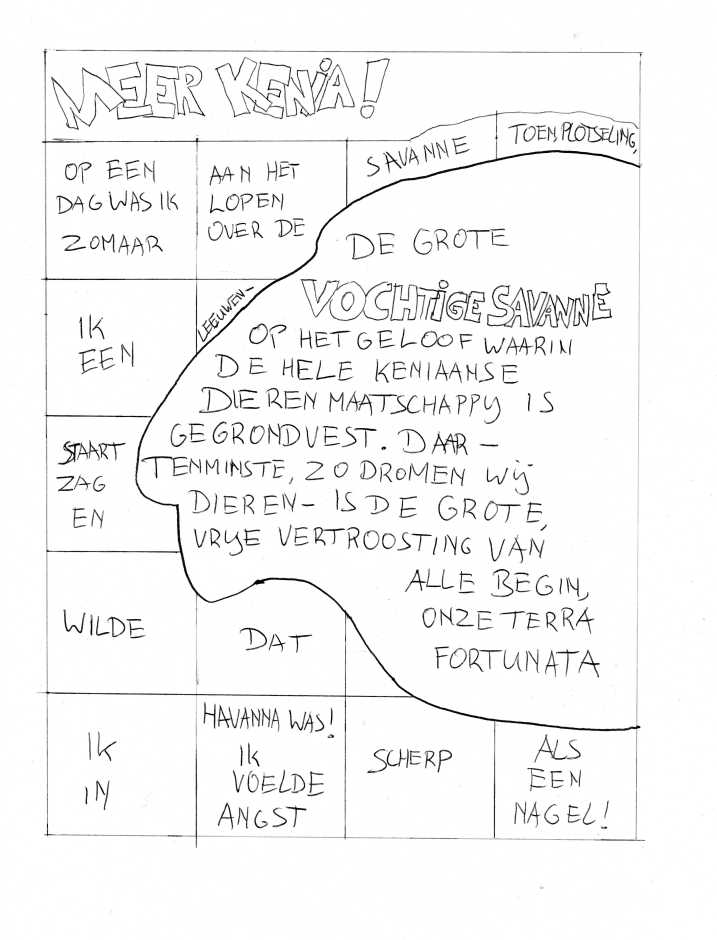 MEER KENIA!
OP EEN
DAG WAS IK
ZOMAAR
AAN HET
LOPEN
OVER DE
SAVANNE
TOEN, PLOTSELING,
IK
EEN
LEEUWEN-
STAART
ZAG
EN
WILDE
DAT
IK
IN
HAVANNA WAS!
IK
VOELDE
ANGST
SCHERP
ALS
EEN
NAGEL!
DE GROTE
VOCHTIGE SAVANNE
OP HET GELOOF WAARIN
DE HELE KENIAANSE
DIERENMAATSCHAPPIJ IS
GEGRONDVEST. DAAR -
TENMINSTE, ZO DROMEN WIJ
DIEREN - IS DE GROTE,
VRIJE VERTROOSTING VAN
ALLE BEGIN,
ONZE TERRA
FORTUNATA